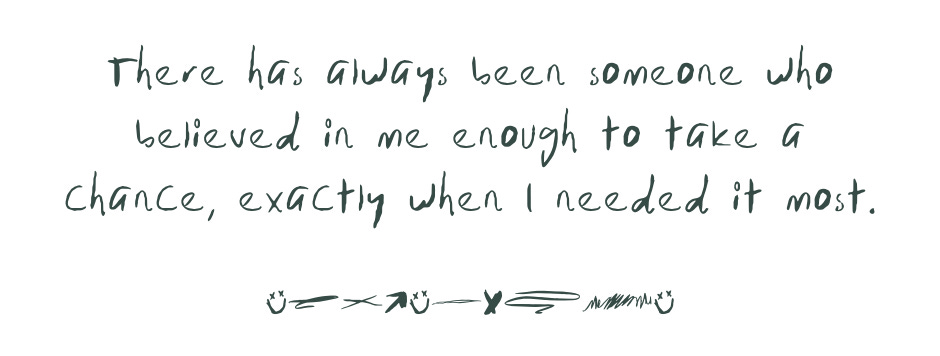 There has always been someone who
believed in me enough to take a
chance, exactly when I needed it most.